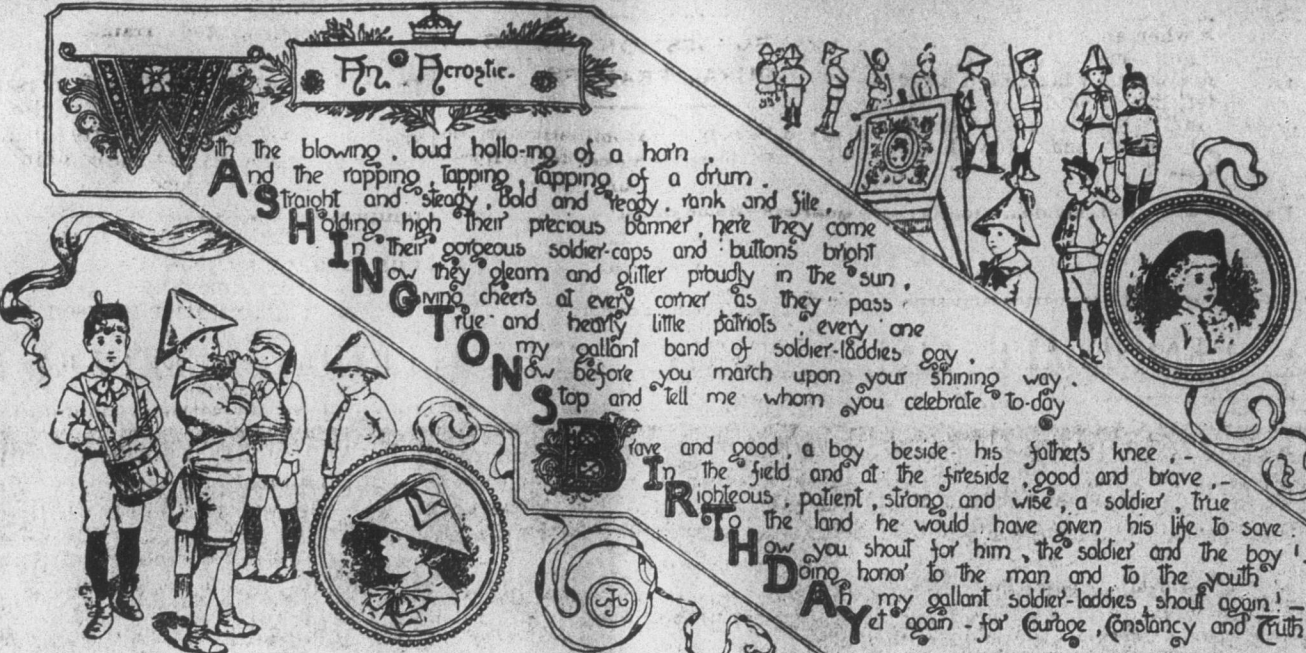 An Acrostic.
With the blowing, loud hollo-ing of a horn,
And the rapping, tapping, tapping of a drum.
Straight and steady, bold and ready, rank and file,
Holding high their precious banner, here they come
In their gorgeous soldier-caps and buttons bright
Now they gleam and glitter proudly in the sun,
Giving cheers at every corner as they pass
True and hearty little patriots, every one
O my gallant band of soldier-laddies gay,
Now before you march upon your shining way.
Stop and tell me whom you celebrate to-day
Brave and good, a boy beside his father's knee,-
In the field and at the fireside, good and brave,-
Righteous, patient, strong, and wise, a soldier, true
To the land he would have given his life to save.
How you shout for him, the soldier and the boy!
Doing honor to the man and to the youth
Ah my gallant soldier-laddies, shout again!-
Yet again - for Courage, Constancy and Truth